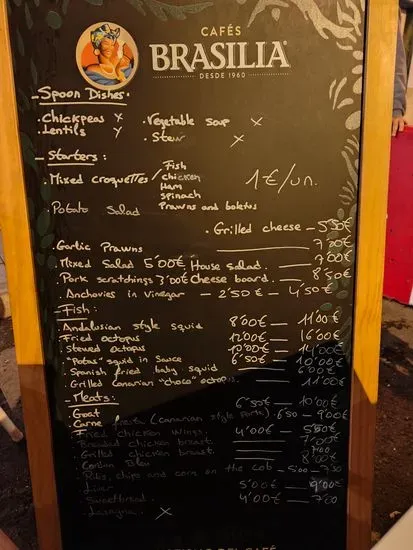 CAFÉS
BRASILIA
DESDE 1960
Spoon Dishes.
.Chickpeas x .Vegetable soup x
.Lentils y .Stew x
Starters:
.Mixed croquettes / Fish
chicken
Ham
spinach
Prawns and boletus
1€/un.
.Potato Salad
.Grilled cheese — 5'50€
.Garlic Prawns — 7'00€
.Mixed Salad 5'00€ House salad. — 7'00€
.Pork scratchings 3'00€ Cheese board. — 8'50€
.Anchovies in vinegar — 2'50€ — 4'50€
Fish:
.Andalusian style squid 8'00€ — 11'00€
.Fried octopus 12'00€ — 16'00€
.Stewed octopus 10'00€ — 14'00€
."Potas" squid in sauce 6'50€ — 10'00€
.Spanish fried baby squid — 6'00€
.Grilled canarian "choco" octopus 11'00€
Meats:
.Goat 6'50€ — 10'00€
.Carne fiesta (canarian style pork) 6'50 — 9'00€
.Fried chicken wings. 4'00€ — 5'50€
.Breaded chicken breast. — 7'00€
.Grilled chicken breast.
.Cordon Bleu — 8'00€
.Ribs, chips and corn on the cob — 5'00 — 7'50
.Liver 5'00€ — 9'00€
.Sweetbread. 4'00€ — 7'00
.Lasagna. x